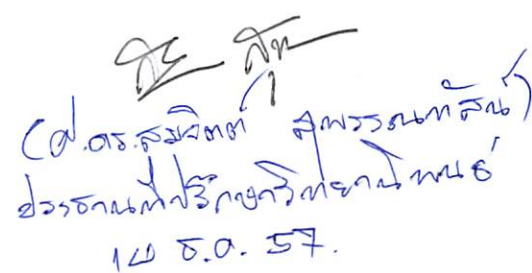 (ศ.ดร.สุมจิตต์ สุพรรณทัสน์)
ประธานที่ปรึกษาวิทยานิพนธ์
๑๒ ธ.ค. 57.